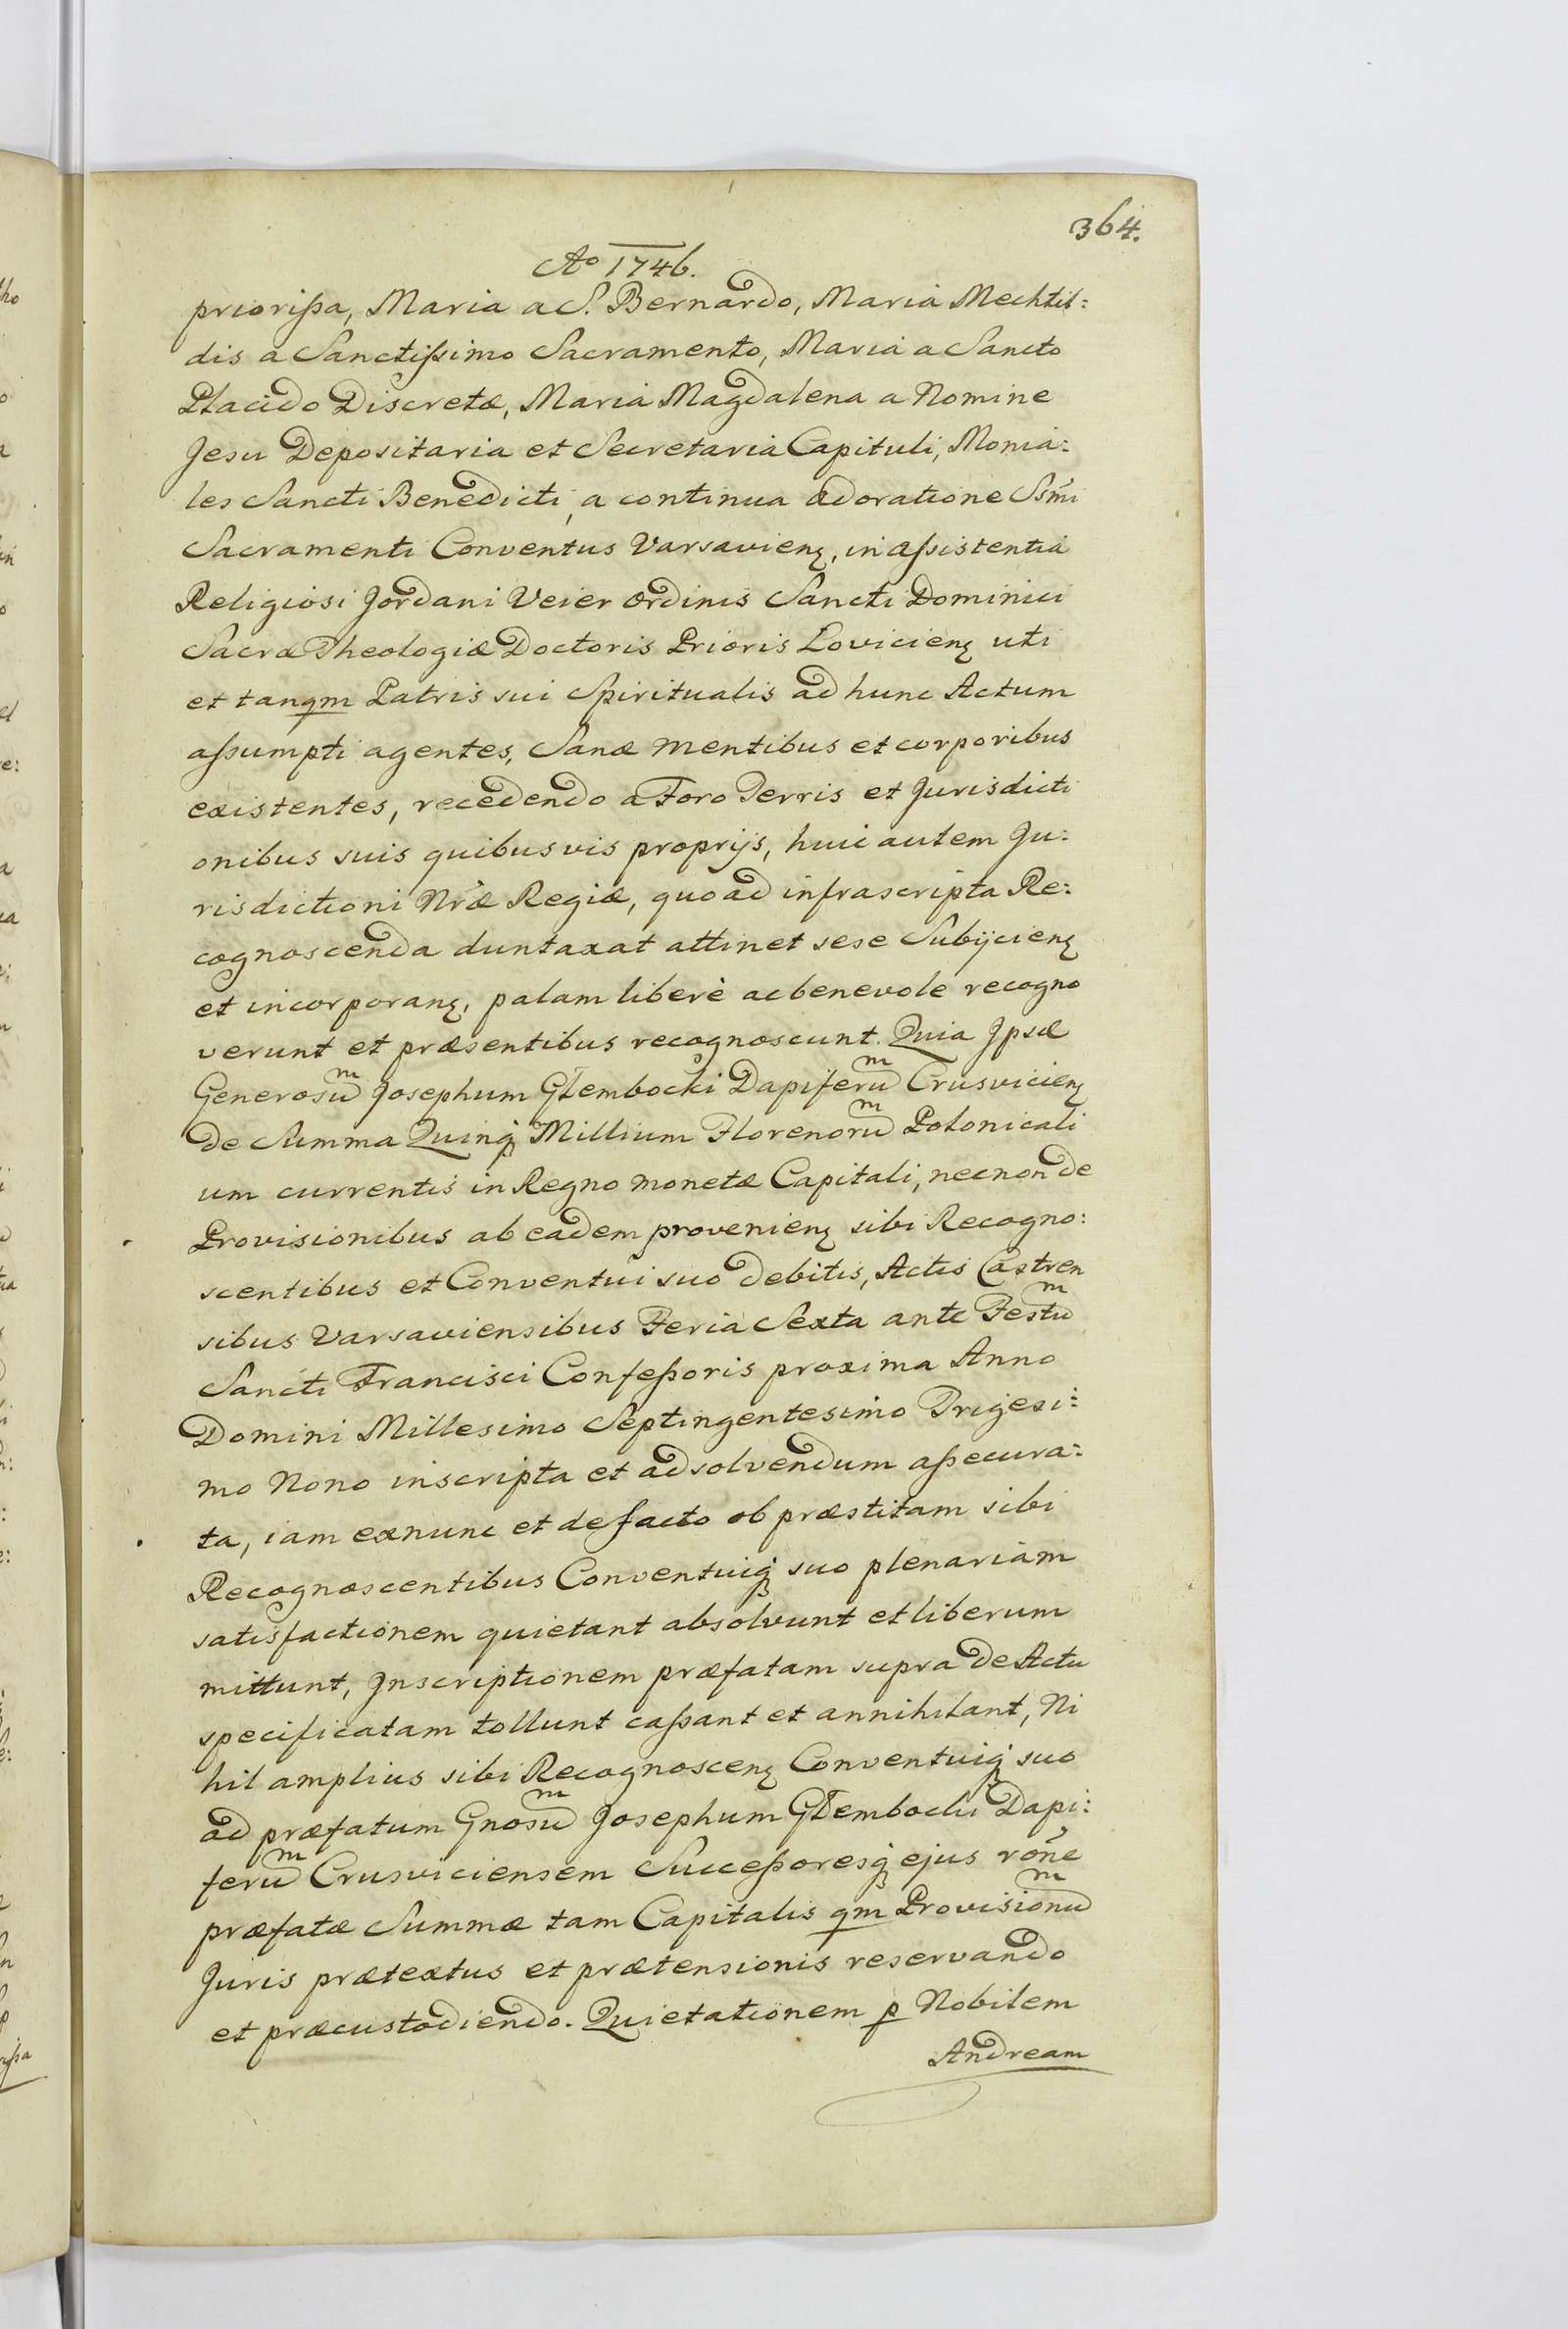 364.
Ao 1746.
priorißa, Maria a S. Bernardo, Maria Mechtil:
dis a Sanctißimo Sacramento, Maria a Sancto
Placido Discretæ, Maria Magdalena a Nomine
Jesu Depositaria et Secretaria Capituli, Monia:
les Sancti Benedicti, a continua adoratione Ssm̃i
Sacramenti Conventus Varsavienȝ, in aßistentia
Religiosi Jordani Veier Ordinis Sancti Dominici
Sacræ Theologiæ Doctoris Prioris Lovicienȝ uti
et tanqm Patris sui Spiritualis ad hunc Actum
aßumpti agentes, Sanæ mentibus et corporibus
existentes, recedendo a Foro Terris et Jurisdicti
onibus suis quibusvis proprijs, huic autem Ju:
risdictioni Nr̃æ Regiæ, quo ad infrascripta Re:
cognoscenda duntaxat attinet sese Subijcienȝ
et incorporanȝ, palam liberè ac benevole recogno
verunt et præsentibus recognoscunt. Quia Ipsæ
Generosuᵐ Josephum Głembocki Dapiferuᵐ Crusvicienȝ
de Summa Quinqꝫ Millium Florenoruᵐ Polonicali
um currentis in Regno monetæ Capitali, necnon de
Provisionibus ab eadem provenienȝ sibi Recogno:
scentibus et Conventui suo debitis, Actis Castren
sibus Varsaviensibus Feria Sexta ante Festuᵐ
Sancti Francisci Confeßoris proxima Anno
Domini Millesimo Septingentesimo Trigesi:
mo Nono inscripta et ad solvendum aßecura:
ta, iam exnunc et defacto ob præstitam sibi
Recognoscentibus Conventuiqꝫ suo plenariam
satisfactionem quietant absolvunt et liberum
mittunt, Inscriptionem præfatam supra de Actu
specificatam tollunt caßant et annihilant, Ni
hil amplius sibi Recognoscenȝ Conventuiqꝫ suo
ad præfatum Gnosuᵐ Josephum Głembocki Dapi:
feruᵐ Crusviciensem Succeßoresqꝫ ejus rõne
præfatæ Summæ tam Capitalis qm Provisionuᵐ
Juris prætextus et prætensionis reservando
et præcustodiendo. Quietationem p Nobilem
Andream